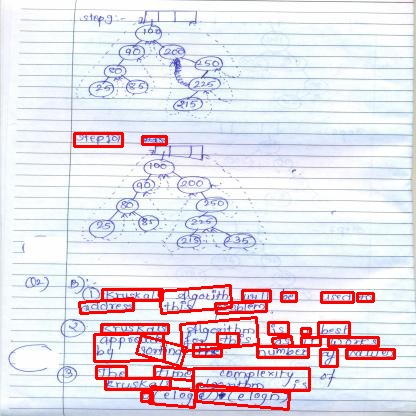 step9:-
100
90 200
80 250
25 85 225
215
step10
100
90 200
80 250
25 85 225
215 235
Q2) B):-
① Kruskal algorith will be used to
address this problem
② Kruskals Algorithm is best
approach for this as it works
by sorting the number of
③ The time complexity of
Kruskals algorithm is